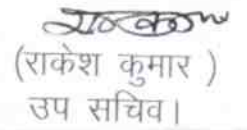 (राकेश कुमार )
उप सचिव।